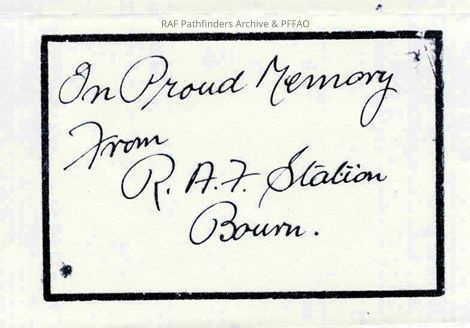 RAF Pathfinders Archive & PFFAO
In Proud Memory
From
R. A. F. Station
Bourn.